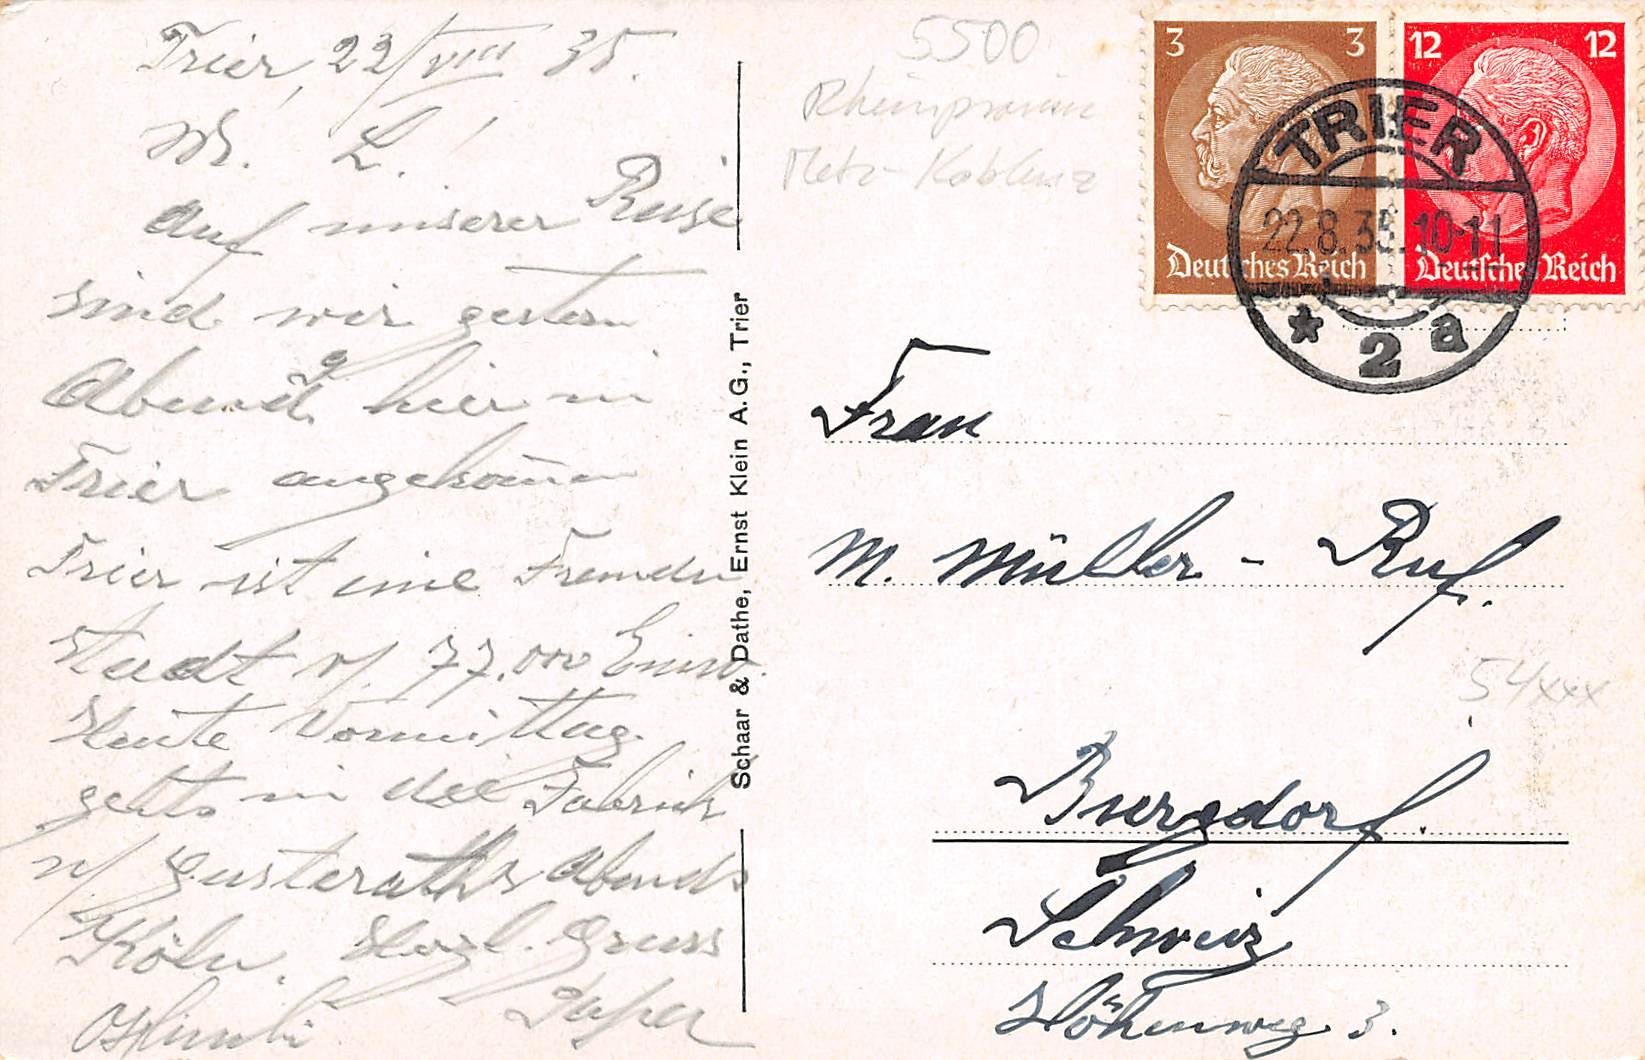 Trier, 22/VIII 35.
M. L.!
Auf unserer Reise
sind wir gestern
Abend hier in
Trier angekommen
Trier ist eine Fremden
stadt v/ 77.000 Einw.
Heute Vormittag
gehts in die Fabrik
v/ Gusterath & Abends
Köln. Herzl. Gruss
Schaar & Dathe, Ernst Klein A. G., Trier
5500
Rheinprovinz
Metz-Koblenz
3 3
Deutsches Reich
12 12
Deutsches Reich
TRIER
22.8.35.10-11
* 2 a
Frau
M. Müller-Ruf.
54xxx
Burgdorf.
Schweiz
Höhenweg 3.